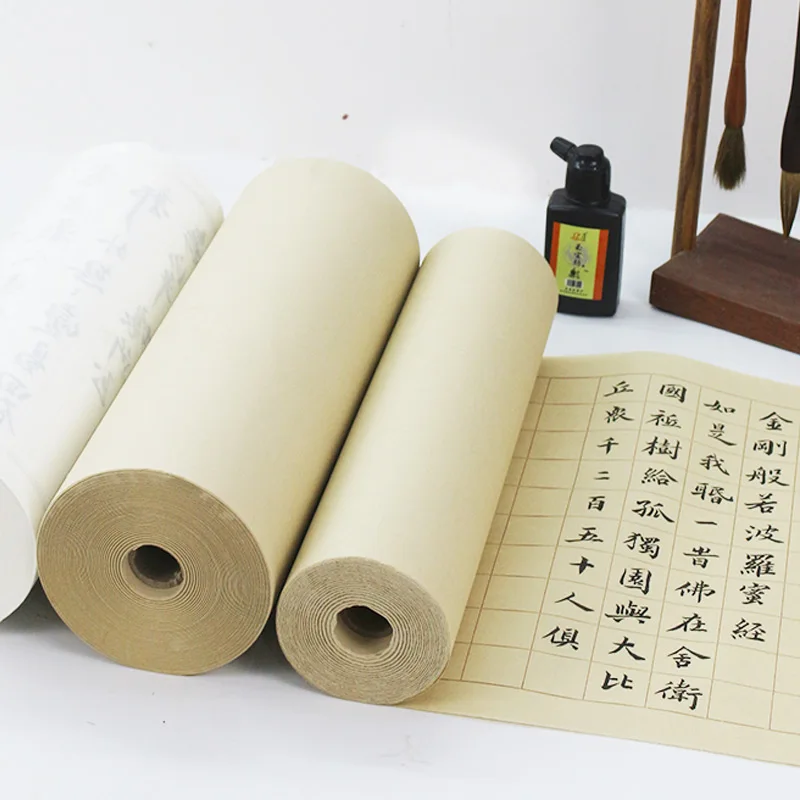 金剛般若波羅蜜経
如是我䎽一旹佛在舍衛
國祇樹給孤獨園與大比
丘眾千二百五十人俱